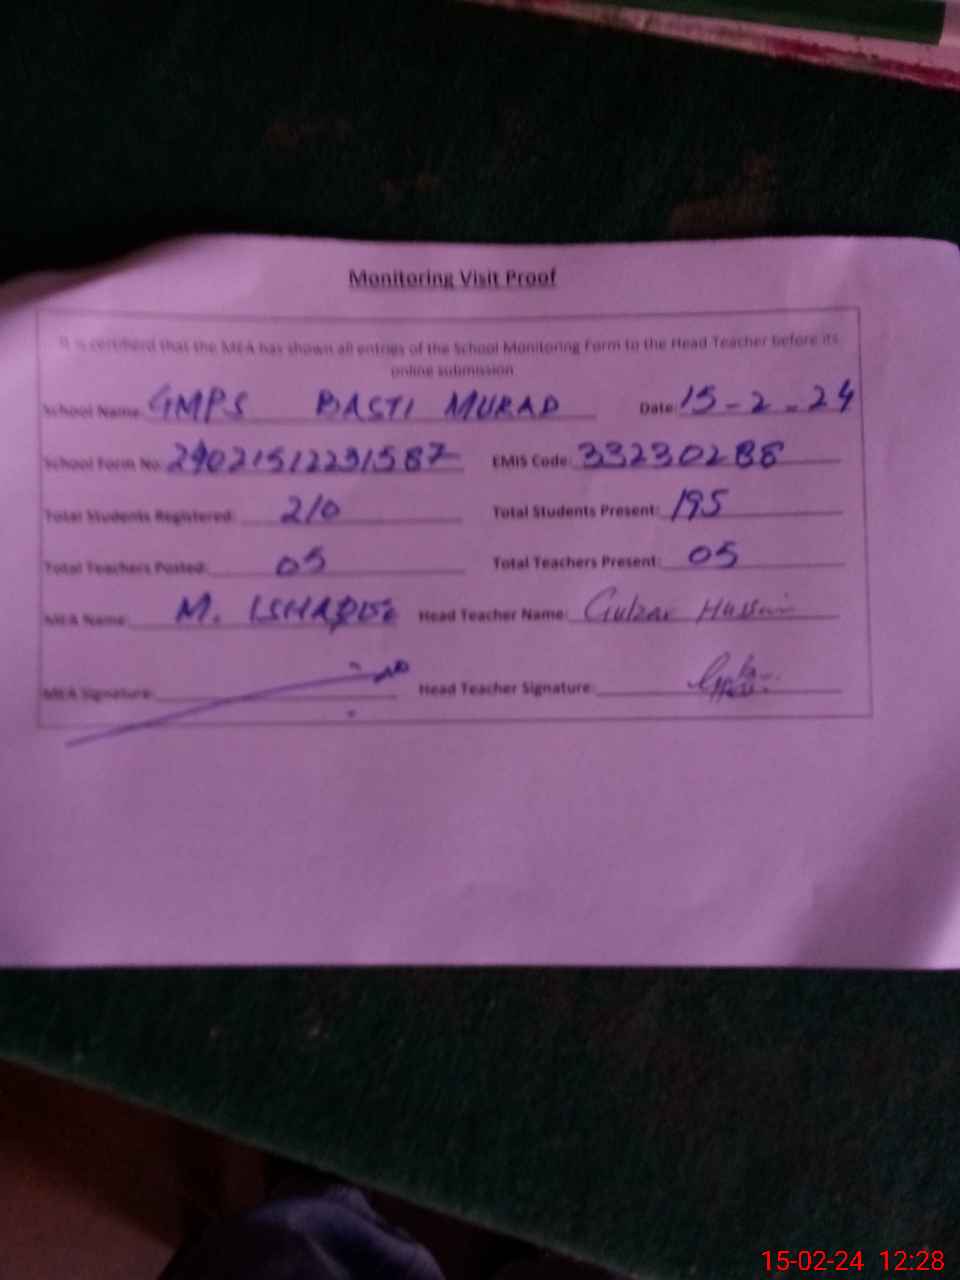 Monitoring Visit Proof
It is certified that the MEA has shown all entries of the School Monitoring Form to the Head Teacher before its
online submission
School Name: GMPS BASTI MURAD Date: 15-2-24
School Form No. EMIS Code: 33230288
Total Students Registered: 210 Total Students Present: 195
Total Teachers Posted: 05 Total Teachers Present: 05
MEA Name: M. Head Teacher Name: Gulzar Hussain
MEA Signature: Head Teacher Signature:
15-02-24 12:28